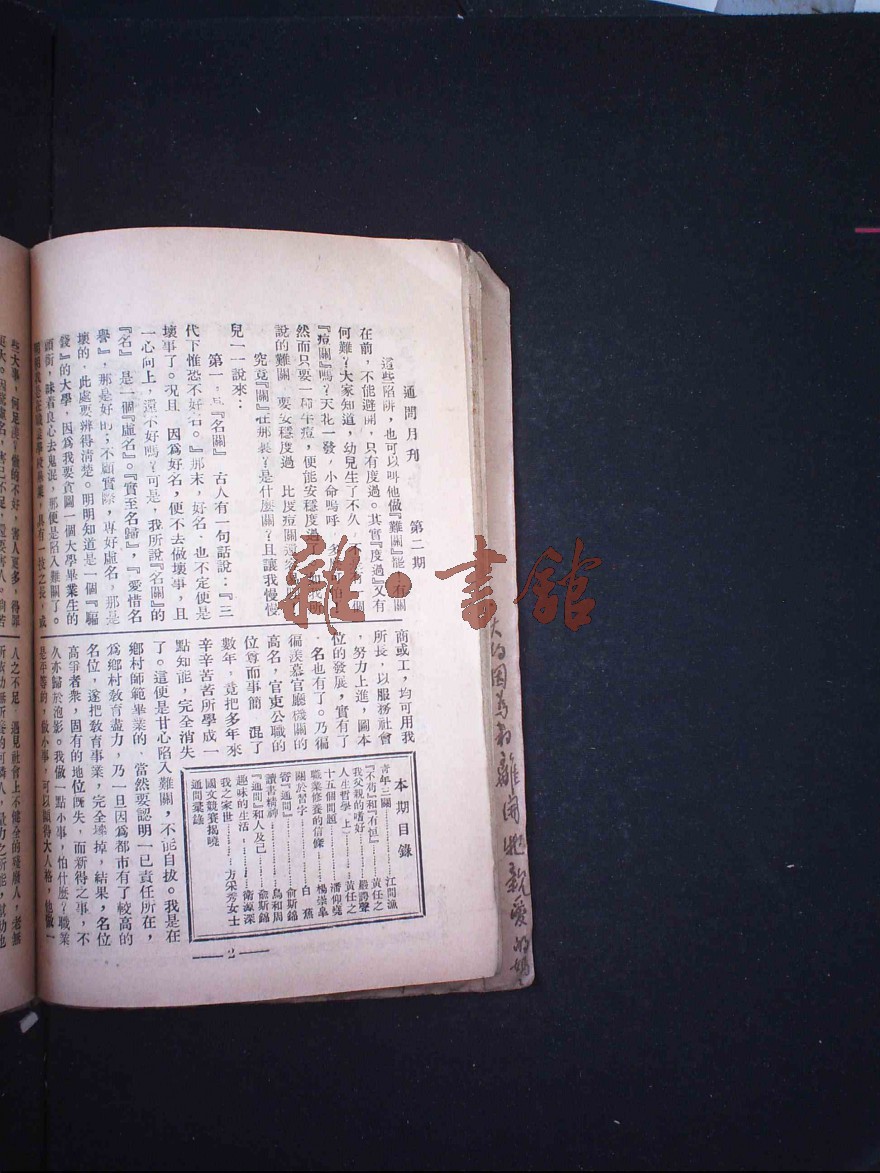 通問月刊　第二期
這些陷阱，也可以叫他做『難關』罷！有關
在前，不能避開，只有度過。其實『度過』又有
何難？大家知道，幼兒生了不久，不有一個
『痘關』嗎？天花一發，小命嗚呼，多可怕
然而只要一種牛痘，便能安穩度過了。如我所
說的難關，要安穩度過，比度痘關還容易
究竟『關』在那裏？是什麼關？且讓我慢慢
兒一一說來：
第一，是『名關』古人有一句話說：『三
代下惟恐不好名。』那末，好名，也不定便是
壞事了。況且，因為好名，便不去做壞事，且
一心向上，還不好嗎？可是，我所說『名關』的
『名』，是一個『虛名』。『實至名歸』，『愛惜名
譽』，那是好的；不顧實際，專好虛名，那是
壞的，此處要辨得清楚。明明知道是一個『騙
錢』的大學，因為我要貪圖一個大學畢業生的
頭銜，昧着良心去鬼混，那便是陷入難關了。
明明我是在職業學校畢業，具有一技之長，或
商或工，均可用我
所長，以服務社會
，努力上進，圖本
位的發展，實有了
，名也有了。乃徧
徧羨慕官廳機關的
高名，官吏公職的
位尊而事簡，混了
數年，竟把多年來
辛辛苦苦所學成一
點知能，完全消失
了。這便是甘心陷入難關，不能自拔。我是在
鄉村師範畢業的，當然要認明一已責任所在，
為鄉村教育盡力，乃一旦因為都市有了較高的
名位，遂把教育事業，完全壞掉，結果，名位
高爭者衆，固有的地位既失，而新得之事，不
久亦歸於泡影。我做一點小事，怕什麼？職業
是平等的，做小事，可以顯得大人格，他做一
本期目錄
青年三關……江問漁
『不苟』和『有恒』……黃任之
我父親的嗜好……嚴諤聲
人生哲學（上）……黃任之
十五個問題……潘仰堯
職業修養的信條……楊崇皋
關於習字……白蕉
寄『通問』……俞斯錦
讀書精神……烏和周
『通問』和人及己……俞斯錦
趣味的生活……衛源深
我之家世……方采秀女士
國文競賽揭曉
通問彙錄
—2—
些大事，何足羨，做的不好，害人更多，得罪
人之不足，遇見社會上不健全的殘廢人，老無
因為有離開牠親愛的媽
雜·書館